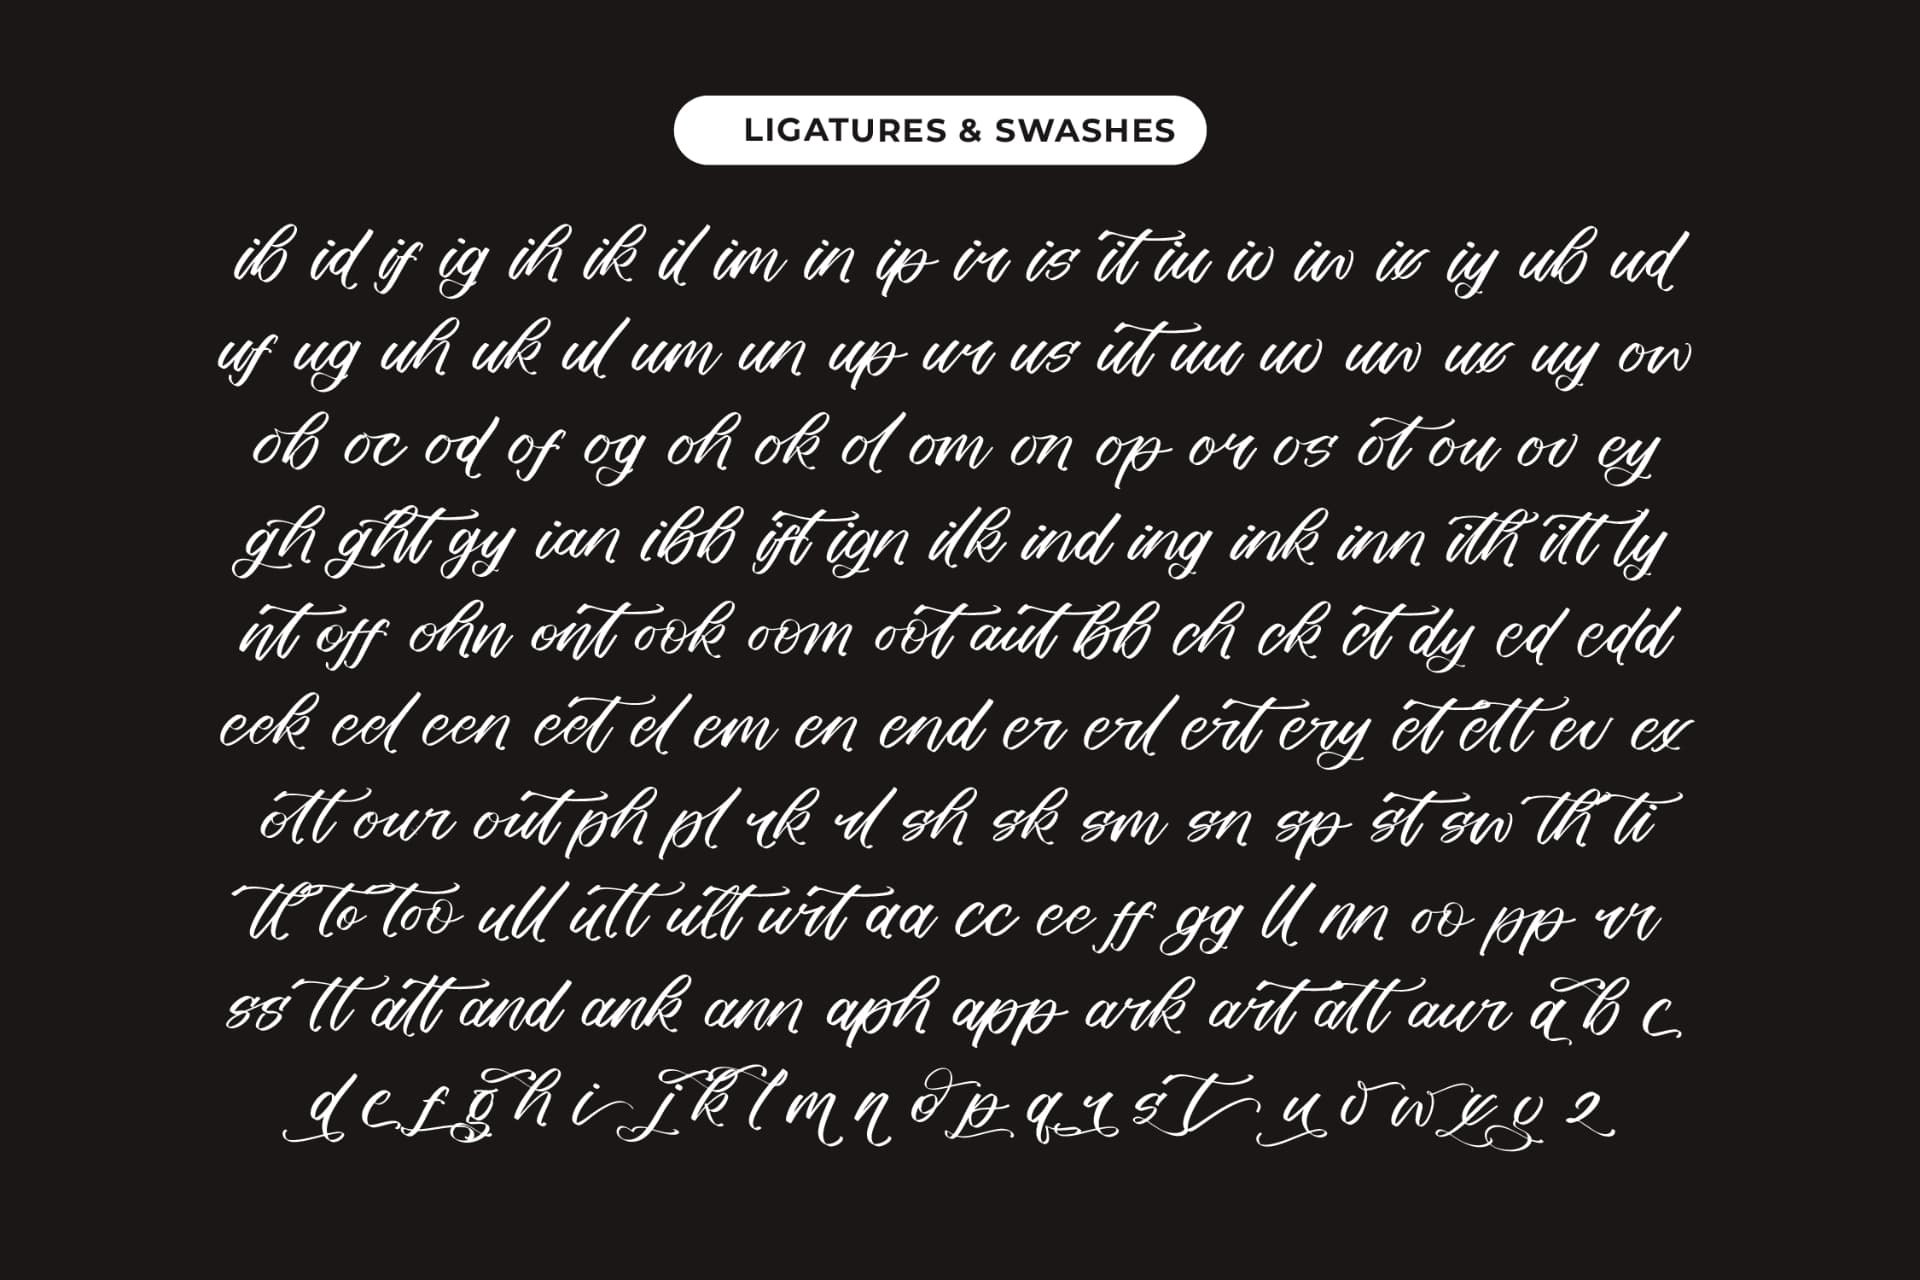 LIGATURES & SWASHES
ib id if ig ih ik il im in ip ir is it iu iv iw ix iy ub ud
uf ug uh uk ul um un up ur us ut uu uv uw ux uy ow
ob oc od of og oh ok ol om on op or os ot ou ov ey
gh ght gy ian ibb ift ign ilk ind ing ink inn ith itt ly
nt off ohn ont ook oom oot aut bb ch ck ct dy ed edd
eek eel een eet el em en end er erl ert ery et ett ev ex
ott our out ph pl rk rl sh sk sm sn sp st sw th ti
tl to too ull utt ult urt aa cc ee ff gg ll nn oo pp rr
ss tt att and ank ann aph app ark art att aur a b c
d e f g h i j k l m n o p q r s t u v w x y z